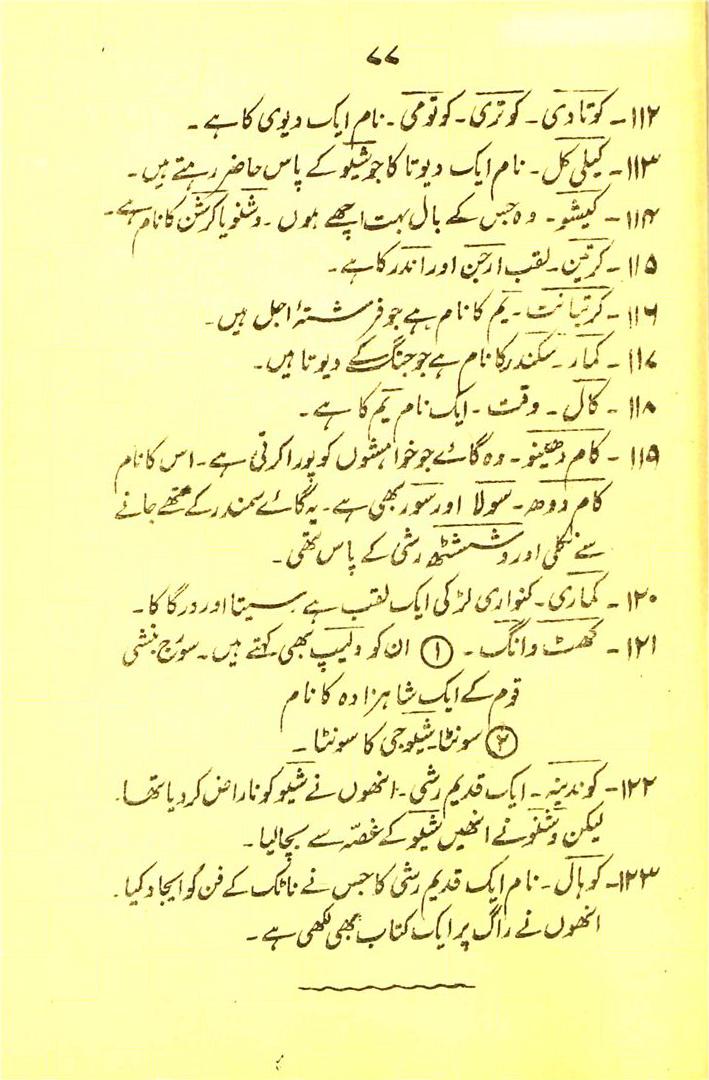 ۷۷
۱۱۲۔ کوتادی۔ کوتری۔ کوتومی۔ نام ایک دیوی کا ہے۔
۱۱۳۔ کیلی کل۔ نام ایک دیوتا کا جو شیو کے پاس حاضر رہتے ہیں۔
۱۱۴۔ کیشو۔ وہ جس کے بال بہت اچھے ہوں۔ وشنو یا کرشن کا نام ہے۔
۱۱۵۔ کرتین۔ لقب ارجن اور اندر کا ہے۔
۱۱۶۔ کرتبانت۔ یم کا نام ہے جو فرشتۂ اجل ہیں۔
۱۱۷۔ کمار۔ سکندر کا نام ہے جو جنگ کے دیوتا ہیں۔
۱۱۸۔ کال۔ وقت۔ ایک نام یم کا ہے۔
۱۱۹۔ کام دھینو۔ وہ گائے جو خواہشوں کو پورا کرتی ہے۔ اس کا نام
کام دودھ۔ سولا اور سوربھی ہے۔ یہ گائے سمندر کے متھے جانے
سے نکلی اور وششٹھ رشی کے پاس تھی۔
۱۲۰۔ کماری۔ کنواری لڑکی ایک لقب ہے سیتا اور درگا کا۔
۱۲۱۔ کھٹ وانگ۔ ① ان کو دلیپ بھی کہتے ہیں۔ سورج بنشی
قوم کے ایک شاہزادہ کا نام
② سونٹا۔ شیوجی کا سونٹا۔
۱۲۲۔ کوندینہ۔ ایک قدیم رشی۔ انھوں نے شیو کو ناراض کر دیا تھا۔
لیکن وشنو نے انھیں شیو کے غصّہ سے بچالیا۔
۱۲۳۔ کوہال۔ نام ایک قدیم رشی کا جس نے ناٹک کے فن کو ایجاد کیا۔
انھوں نے راگ پر ایک کتاب بھی لکھی ہے۔